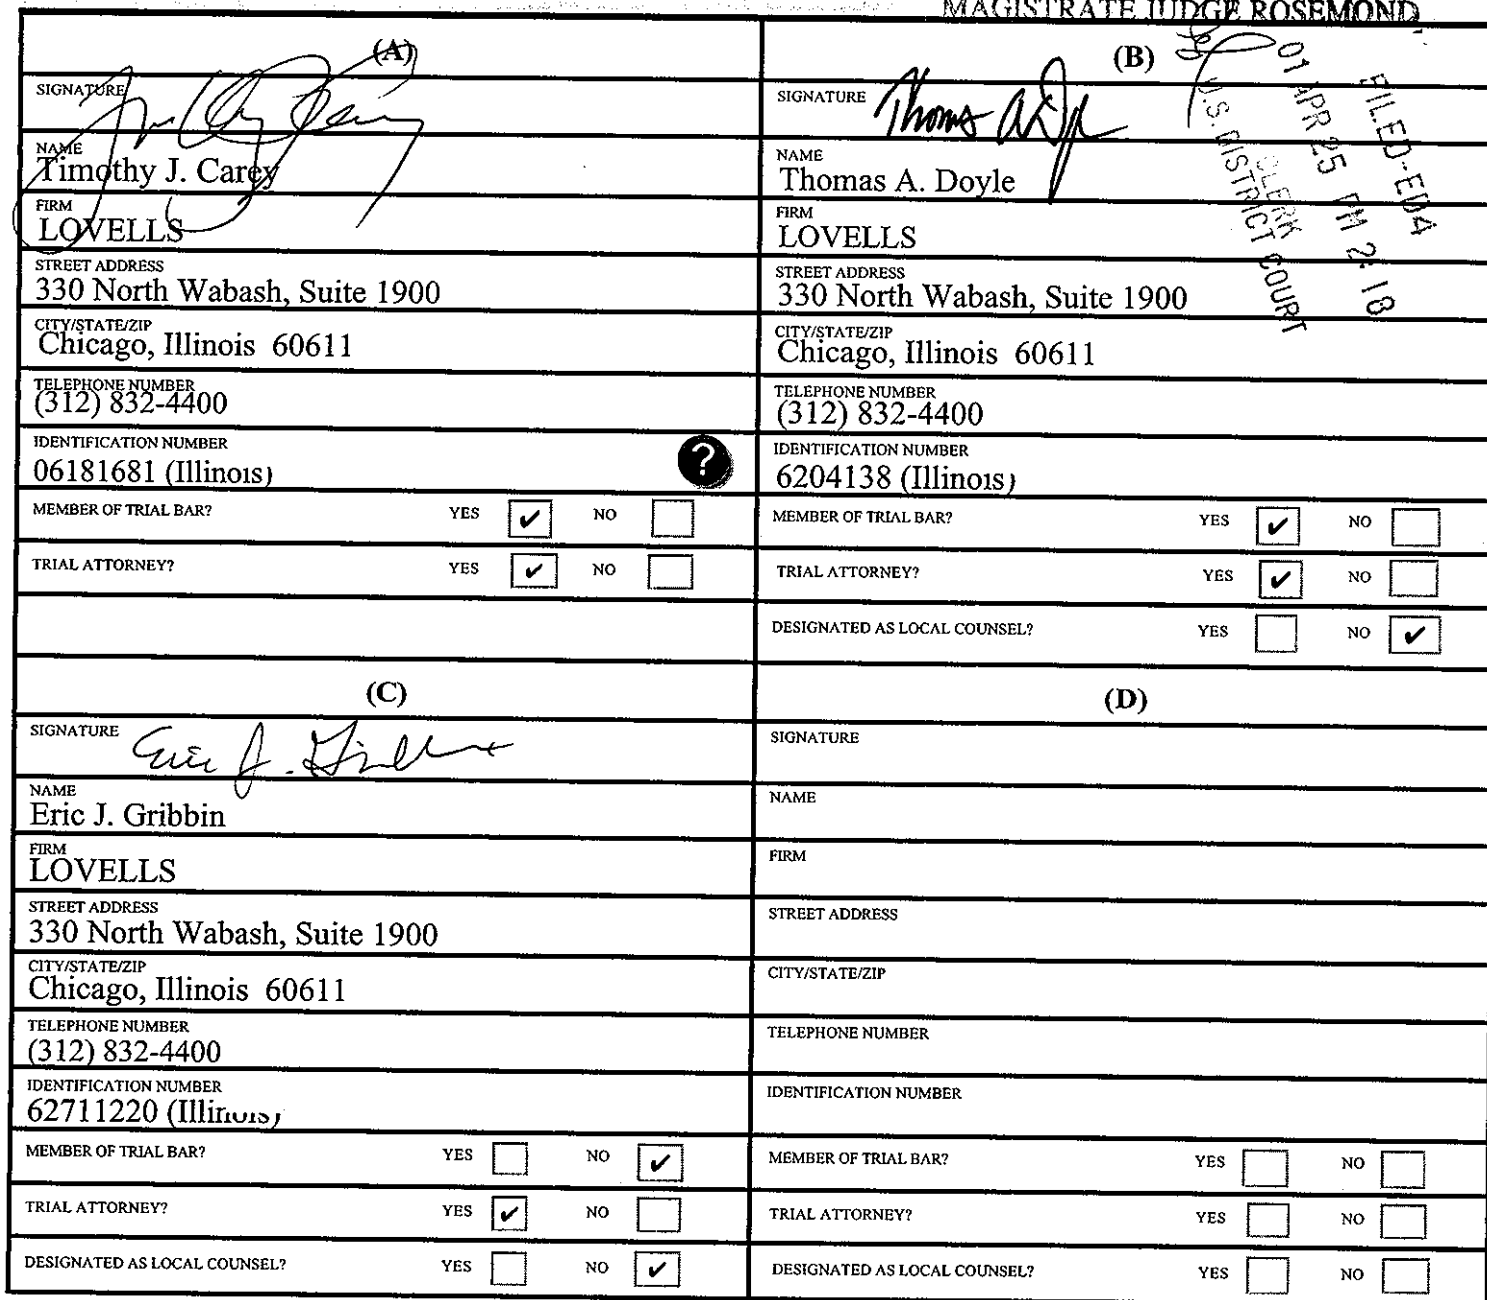 MAGISTRATE JUDGE ROSEMOND
(A)
SIGNATURE
NAME
Timothy J. Carey
FIRM
LOVELLS
STREET ADDRESS
330 North Wabash, Suite 1900
CITY/STATE/ZIP
Chicago, Illinois 60611
TELEPHONE NUMBER
(312) 832-4400
IDENTIFICATION NUMBER
06181681 (Illinois)
?
MEMBER OF TRIAL BAR? YES ✔ NO
TRIAL ATTORNEY? YES ✔ NO
(B)
SIGNATURE Thomas A Doyle
NAME
Thomas A. Doyle
FIRM
LOVELLS
STREET ADDRESS
330 North Wabash, Suite 1900
CITY/STATE/ZIP
Chicago, Illinois 60611
TELEPHONE NUMBER
(312) 832-4400
IDENTIFICATION NUMBER
6204138 (Illinois)
MEMBER OF TRIAL BAR? YES ✔ NO
TRIAL ATTORNEY? YES ✔ NO
DESIGNATED AS LOCAL COUNSEL? YES NO ✔
FILED-ED4
01 APR 25 PM 2:18
CLERK
U.S. DISTRICT COURT
(C)
SIGNATURE Eric J. Gribbin
NAME
Eric J. Gribbin
FIRM
LOVELLS
STREET ADDRESS
330 North Wabash, Suite 1900
CITY/STATE/ZIP
Chicago, Illinois 60611
TELEPHONE NUMBER
(312) 832-4400
IDENTIFICATION NUMBER
62711220 (Illinois)
MEMBER OF TRIAL BAR? YES NO ✔
TRIAL ATTORNEY? YES ✔ NO
DESIGNATED AS LOCAL COUNSEL? YES NO ✔
(D)
SIGNATURE
NAME
FIRM
STREET ADDRESS
CITY/STATE/ZIP
TELEPHONE NUMBER
IDENTIFICATION NUMBER
MEMBER OF TRIAL BAR? YES NO
TRIAL ATTORNEY? YES NO
DESIGNATED AS LOCAL COUNSEL? YES NO